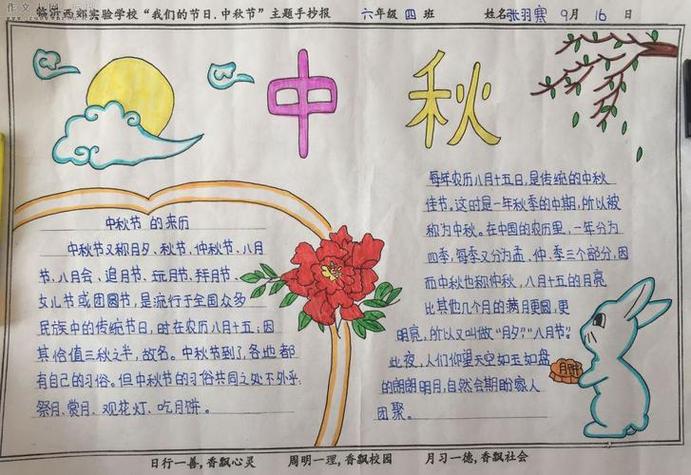 临沂西郊实验学校“我们的节日.中秋节”主题手抄报 六年级 四 班 姓名 张羽寒 9月 16 日
中 秋
中秋节 的来历
中秋节又称月夕、秋节、仲秋节、八月
节、八月会、追月节、玩月节、拜月节、
女儿节或团圆节，是流行于全国众多
民族中的传统节日，时在农历八月十五；因
其恰值三秋之半，故名。中秋节到了，各地都
有自己的习俗。但中秋节的习俗共同之处不外乎：
祭月、赏月、观花灯、吃月饼。
每年农历八月十五日，是传统的中秋
佳节。这时是一年秋季的中期，所以被
称为中秋。在中国的农历里，一年分为
四季，每季又分为孟、仲、季三个部分，因
而中秋也称仲秋，八月十五的月亮
比其他几个月的满月更圆，更
明亮，所以又叫做“月夕”，“八月节”。
此夜，人们仰望天空如玉如盘
的朗朗明月，自然会期盼家人
团聚。
月饼
日行一善,香飘心灵 周明一理,香飘校园 月习一德,香飘社会